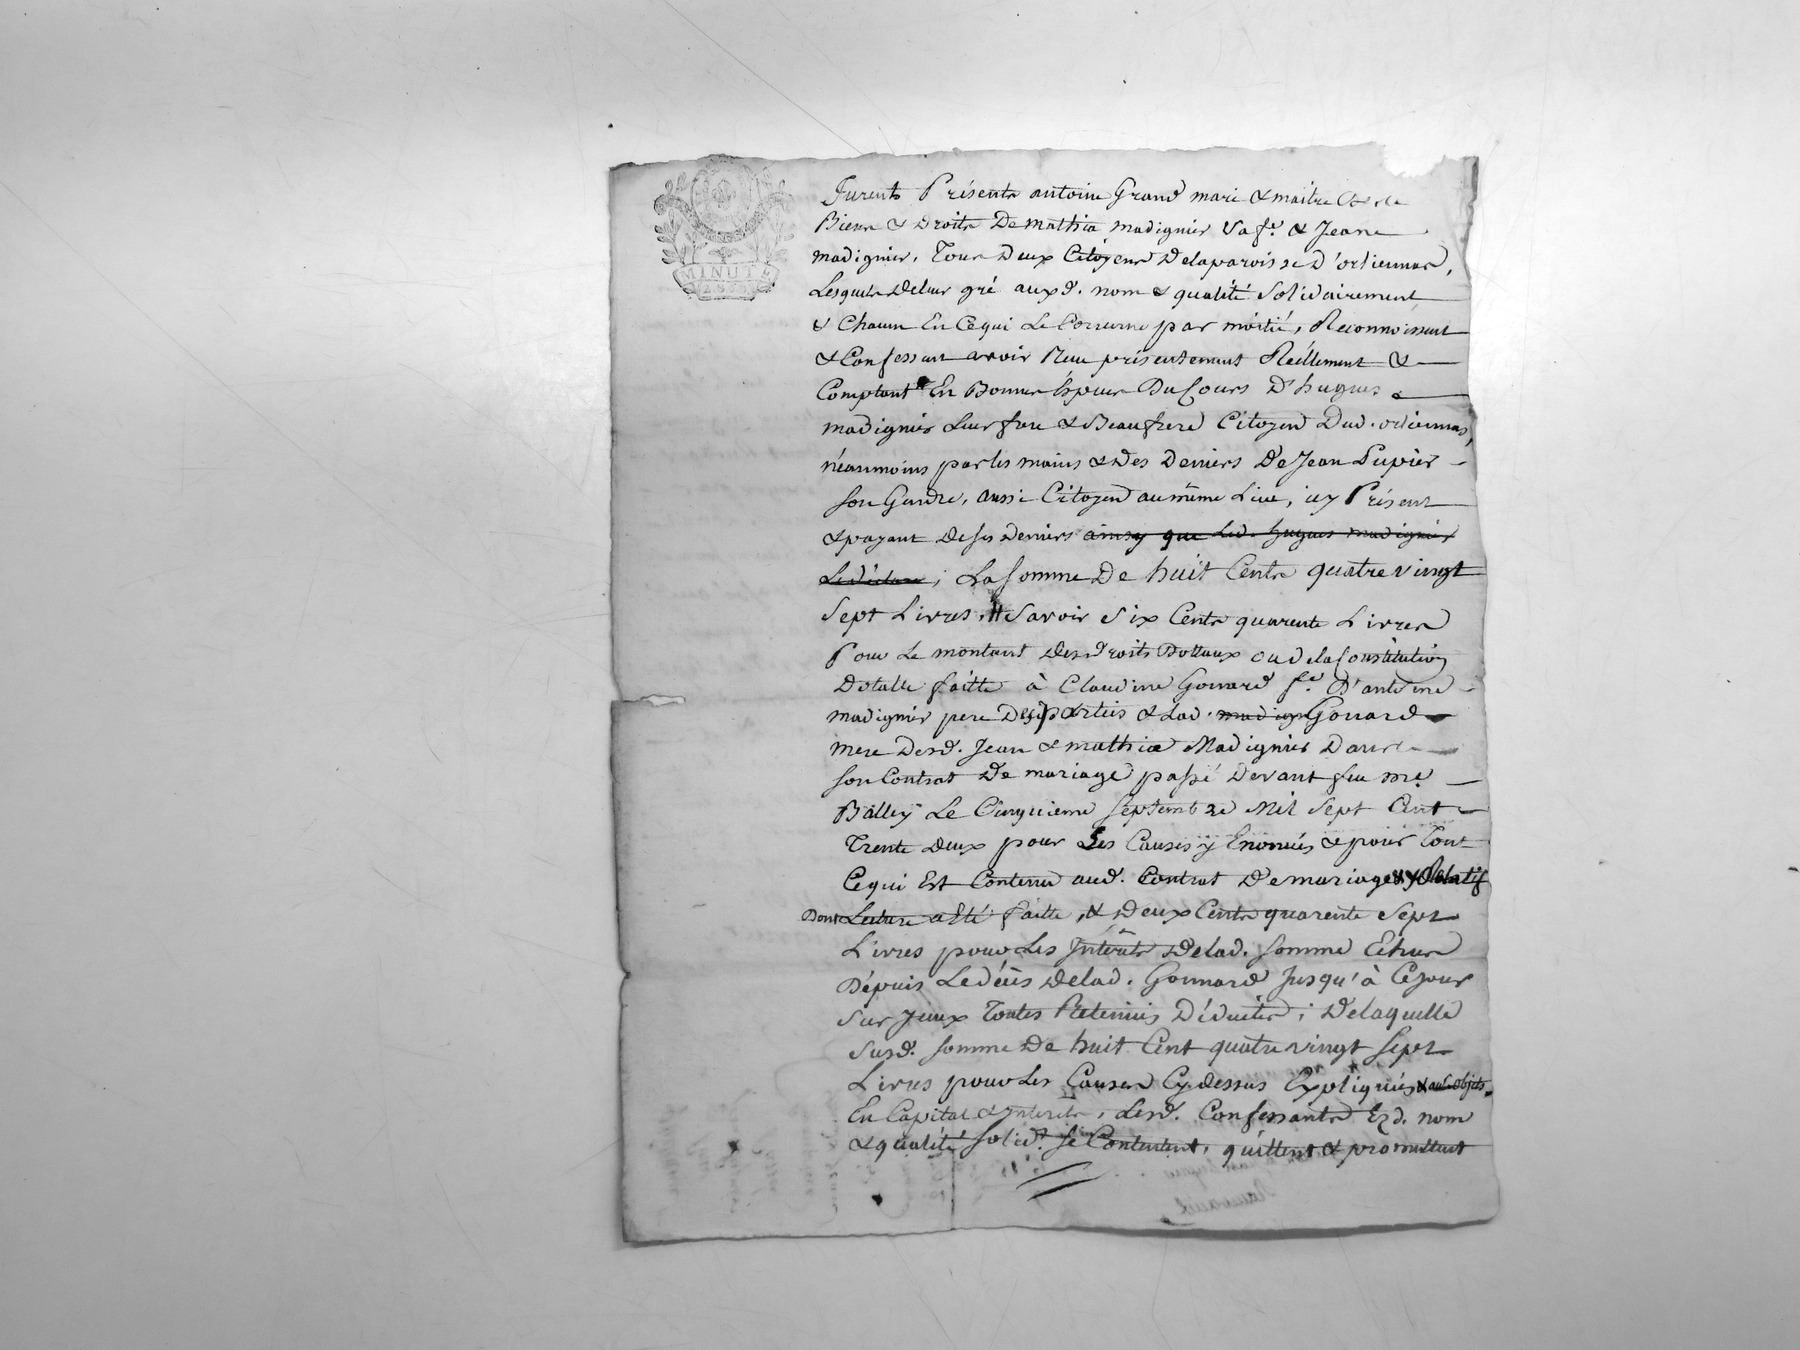 MINUTE
Furents Présents antoine Grand mari & maitre des
Biens & droits De mathia madignier Sa fe. & Jean
madignier, Tous Deux Citoyens Delaparoisse D'orliennas,
Lesquels Deleur gré auxd. nom & qualité Solidairement
& Chacun En Cequi Le Concerne par moitié, Reconnoissent
& Confessent avoir Reçu présentement Réellement &
Comptant En Bonnes Espèces Du Cours D'hugues
madignier Leur frere & Beaufrere Citoyen Dud. orliennas,
néanmoins par les mains & Des Deniers De Jean Pupier
son Gendre, aussi Citoyen au même Lieu, icy Présent
& payant De ses Deniers ainsy que Led. hugues madignier
Le déclare, La Somme De huit Cents quatre vingt
Sept Livres, Savoir Six Cents quarente Livres
Pour Le montant Desd. Droits Dottaux ou dela Constitution
Dotalle faitte à Claudine Gonnard fe. D'antoine
madignier pere Des parties & Lad. Gonnard
mere Desd. Jean & mathia Madignier Dans
son Contrat De mariage passé Devant feu me
Balley Le Cinquieme Septembre Mil Sept Cent
Trente Deux pour Les Causes y Enoncés & pour Tout
Cequi Est Contenu aud. Contrat De mariage & y Relatif
Dont Lecture a Eté faitte, & Deux Cents quarente Sept
Livres pour Les Intérêts Delad. Somme Echus
Dépuis Le décès Delad. Gonnard Jusqu'à Cejour
Sur Iceux Toutes Retenües Déduites; De laquelle
Susd. somme De huit Cent quatre vingt Sept
Livres pour Les Causes Cy dessus Expliquées & aut. objets
En Capital & Interêts, Lesd. Confessants Esd. nom
& qualité solidt. se Contentent, quittent & promettent